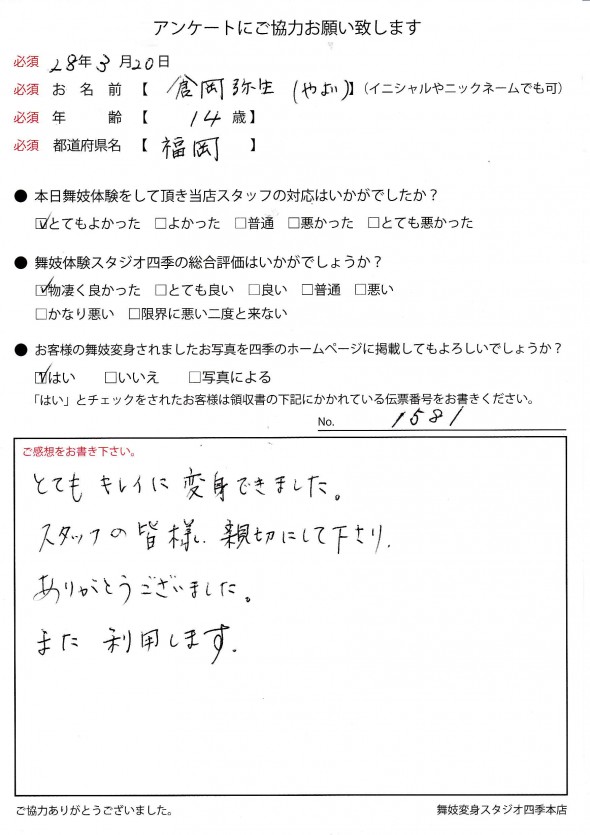 アンケートにご協力お願い致します
必須 28年3月20日
必須 お名前【 倉岡弥生 (やよい)】(イニシャルやニックネームでも可)
必須 年齢【 14歳】
必須 都道府県名【 福岡 】
● 本日舞妓体験をして頂き当店スタッフの対応はいかがでしたか？
☑とてもよかった □よかった □普通 □悪かった □とても悪かった
● 舞妓体験スタジオ四季の総合評価はいかがでしょうか？
☑物凄く良かった □とても良い □良い □普通 □悪い
□かなり悪い □限界に悪い二度と来ない
● お客様の舞妓変身されましたお写真を四季のホームページに掲載してもよろしいでしょうか？
☑はい □いいえ □写真による
「はい」とチェックをされたお客様は領収書の下記にかかれている伝票番号をお書きください。
No. 1581
ご感想をお書き下さい。
とても キレイに 変身できました。
スタッフの 皆様、親切にして下さり、
ありがとうございました。
また 利用します。
ご協力ありがとうございました。
舞妓変身スタジオ四季本店